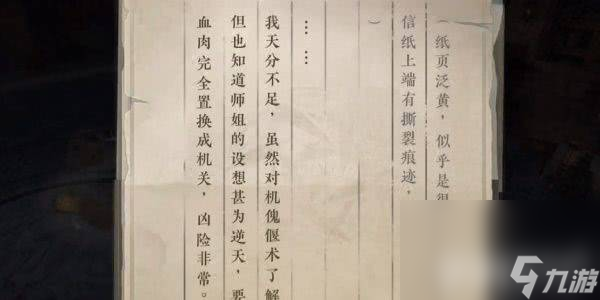 （纸页泛黄，似乎是很
信纸上端有撕裂痕迹，
）
……
我天分不足，虽然对机傀偃术了解
但也知道师姐的设想甚为逆天，要
血肉完全置换成机关，凶险非常。
九游